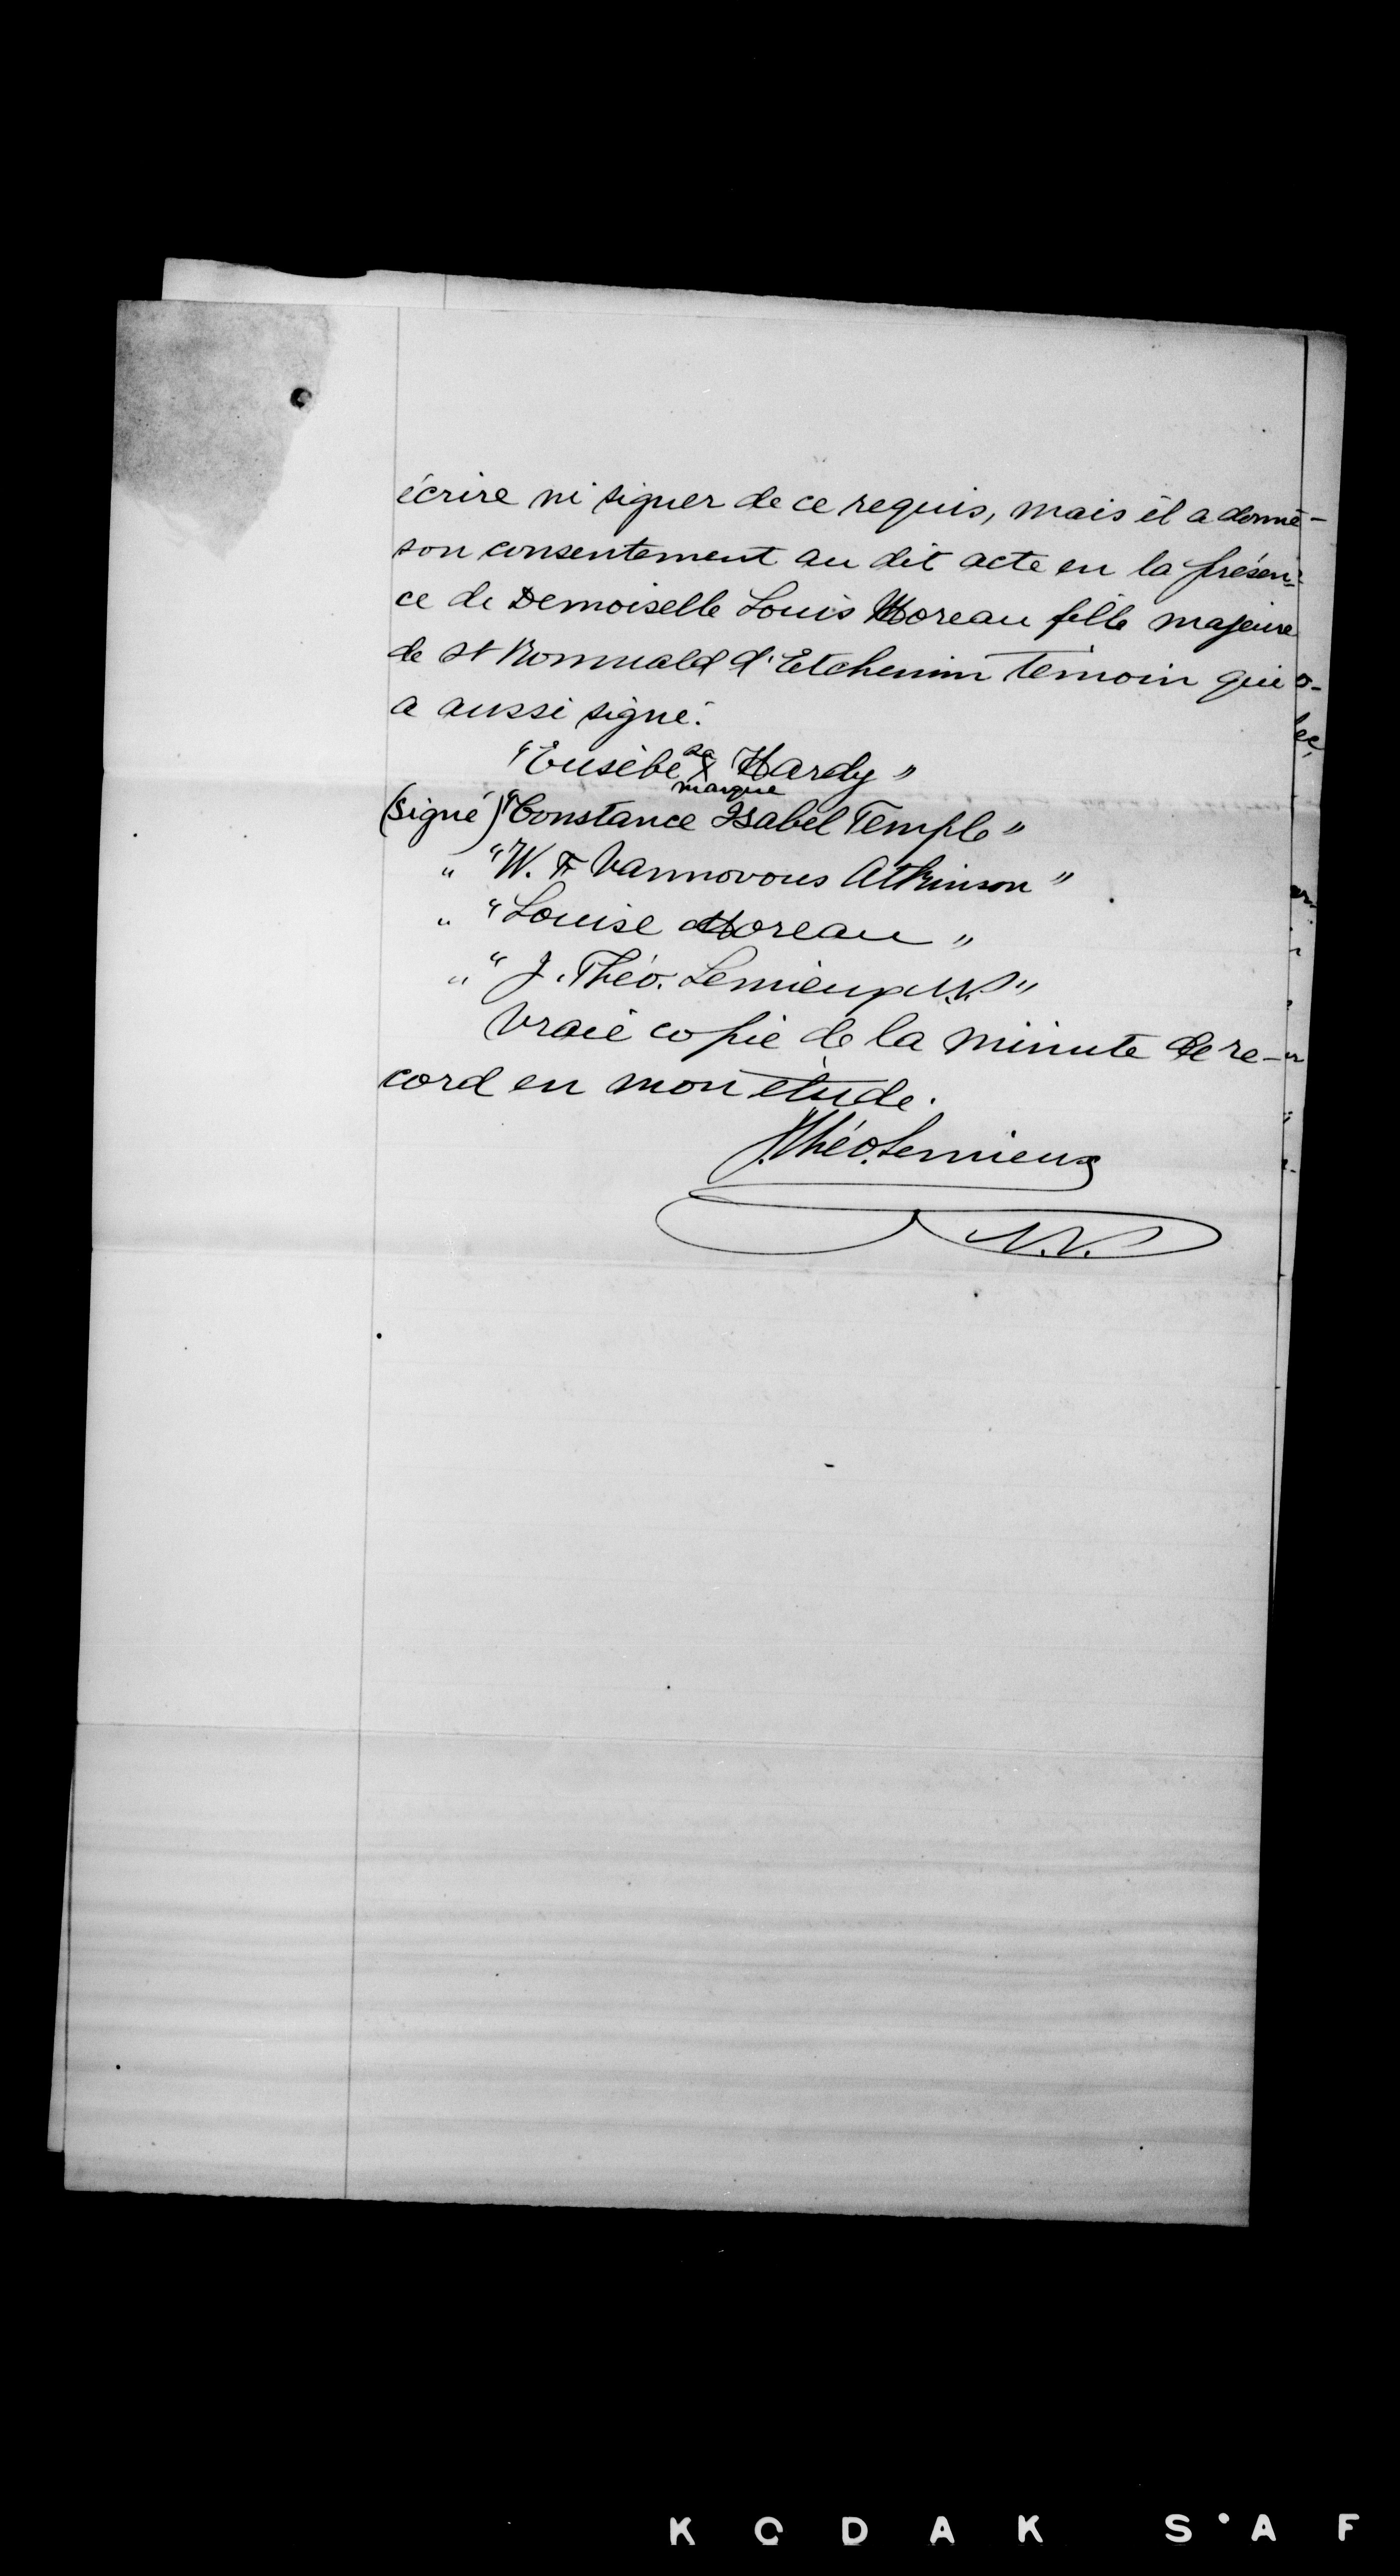 écrire ni signer de ce requis, mais il a donné
son consentement au dit acte en la présen-
ce de Demoiselle Louis Moreau fille majeure
de St Romuald d'Etchemin témoin qui
a aussi signé.
"Eusèbe sa X marque Hardy"
(Signé) "Constance Isabel Temple"
" "W. F Vannovous Atkinson"
" "Louise Moreau"
" "J. Théo. Lemieux N.P"
Vraie copie de la minute de re-
cord en mon étude.
J. Théo. Lemieux
N.P.
KODAK S·AF